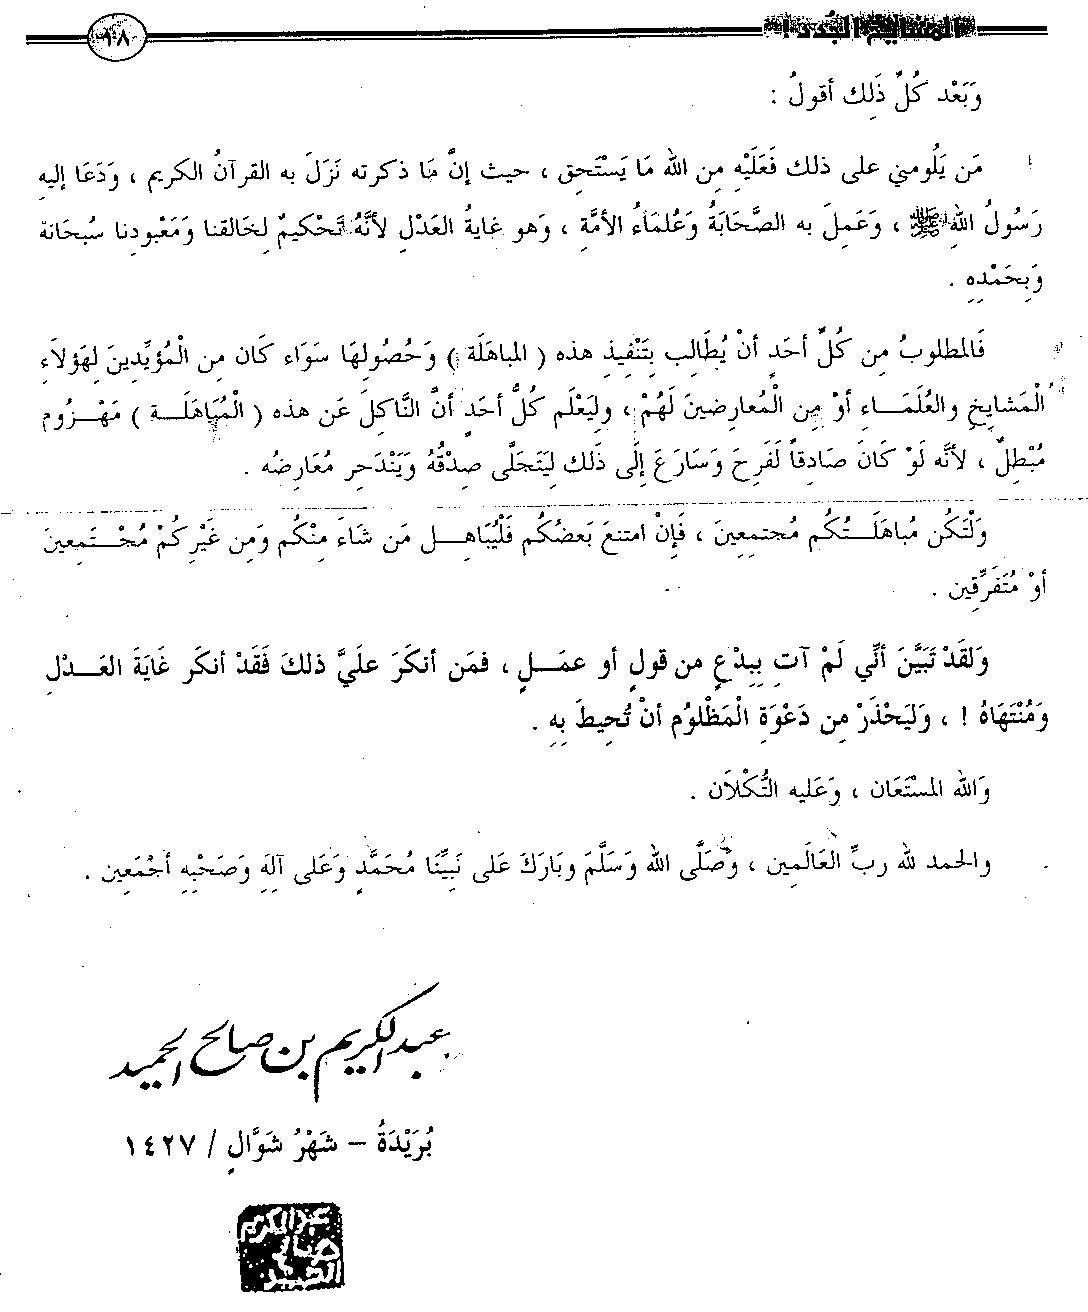 المشايخ الجُدد !
٩٨
وَبَعْد كُلِّ ذَلِك أقولُ :
مَن يَلُومني على ذلك فَعَلَيْه مِن الله مَا يَسْتَحِق ، حيث إنَّ مَا ذكرته نَزَلَ به القرآنُ الكريم ، وَدَعَا إليه
رَسُولُ اللهِ ﷺ ، وَعَمِلَ به الصَّحَابَةُ وَعُلمَاءُ الأمَّة ، وَهو غايةُ العَدْل لأنَّهُ تَحْكيمٌ لِخَالقنا وَمَعْبودنا سُبحَانهُ
وَبِحَمْدِهِ .
فَالمطلوبُ مِن كُلِّ أحَدٍ أنْ يُطَالِب بِتَنْفِيذِ هذه ( المباهَلَة ) وَحُصُولِهَا سَوَاء كَان مِن الْمُؤيِّدِينَ لِهَؤلاَءِ
الْمَشايِخِ والعُلَمَـاءِ أوْ مِن الْمُعَارِضينَ لَهُمْ ، وليَعْلَم كُلُّ أحَدٍ أنَّ النَّاكِلَ عَن هذه ( الْمُبَاهَلَـة ) مَهْـزُوم
مُبْطِلٌ ، لأنَّه لَوْ كَانَ صَادِقاً لَفَرِحَ وَسَارَعَ إلَى ذَلك لِيَتَجَلَّى صِدْقُهُ وَيَنْدَحِر مُعَارِضُه .
وَلْتَكُن مُباهَلَـتُكُم مُجتمِعِينَ ، فَإنْ امتنعَ بَعضُكُم فَلْيُبَاهِـل مَن شَاءَ مِنْكُم وَمِن غَيْرِكُمْ مُجْـتَمِعِينَ
أوْ مُتَفَرِّقِين .
وَلقَدْ تَبَيَّنَ أنِّي لَمْ آتِ بِبِدْعٍ مِن قولٍ أو عمَـلٍ ، فمَن أنكَرَ علَيَّ ذلكَ فَقَدْ أنكَر غَايَةَ العَـدْلِ
وَمُنْتَهَاهُ ! ، وَليَحْذَرْ مِن دَعْوَةِ الْمَظْلُوُمِ أنْ تُحِيطَ بِهِ .
وَالله المسْتَعَان ، وَعَليه التُّكْلاَن .
والحمد لله ربِّ العَالَمِين ، وَصَلَّى الله وَسَلَّمَ وبَارَكَ عَلى نَبِيِّنَا مُحَمَّدٍ وَعَلى آلِهِ وَصَحْبِهِ أجْمَعِين .
عبدالكريم بن صالح الحميد
بُرَيْدَةُ – شَهْرُ شَوَّالٍ / ١٤٢٧
عبدالكريم
صالح
الحميد